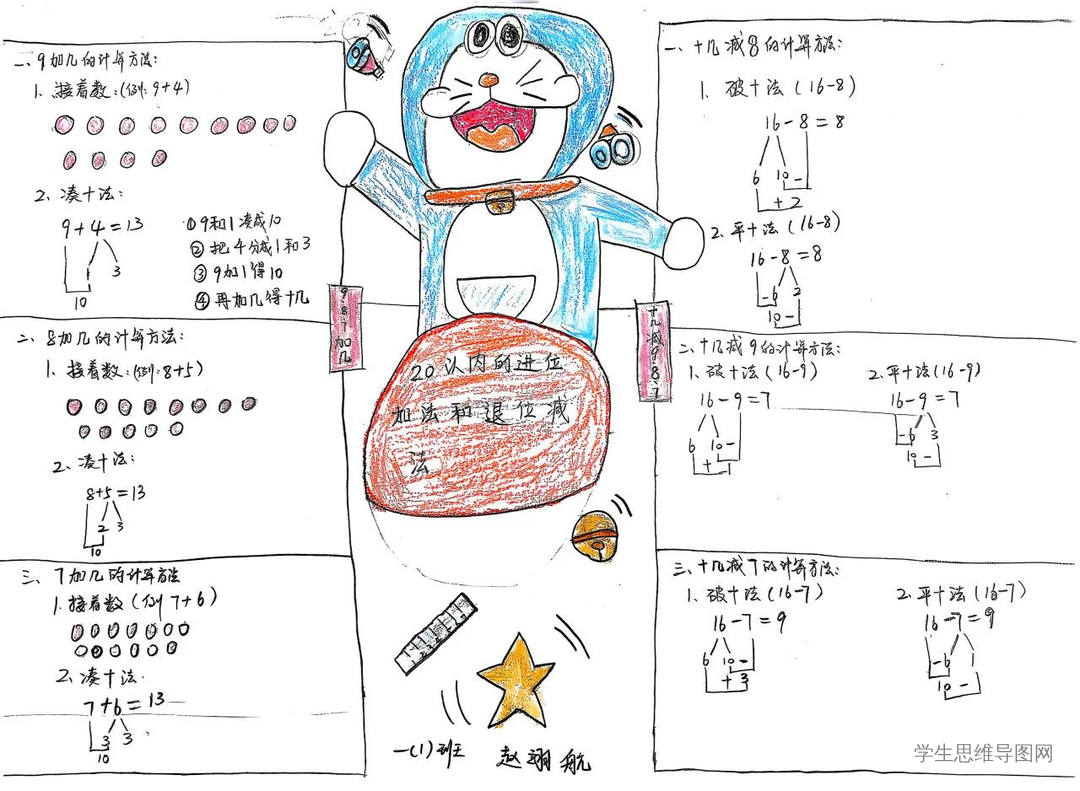 一、9加几的计算方法:
1. 接着数:(例:9+4)
2. 凑十法:
9+4=13
1 3
10
①9和1凑成10
②把4分成1和3
③9加1得10
④再加几得十几
二、8加几的计算方法:
1. 接着数:(例:8+5)
2、凑十法:
8+5=13
2 3
10
三、7加几的计算方法
1.接着数(例7+6)
2.凑十法.
7+6=13
3 3
10
9、8、7加几
20以内的进位
加法和退位减
法
一(1)班 赵翊航
十几减9、8、7
一、十几减8的计算方法:
1. 破十法(16-8)
16-8=8
6 10-
+2
2.平十法(16-8)
16-8=8
-6 2
10-
二、十几减9的计算方法:
1.破十法(16-9)
16-9=7
6 10-
+1
2.平十法(16-9)
16-9=7
-6 3
10-
三、十几减7的计算方法:
1.破十法(16-7)
16-7=9
6 10-
+3
2.平十法(16-7)
16-7=9
-6 1
10-
学生思维导图网